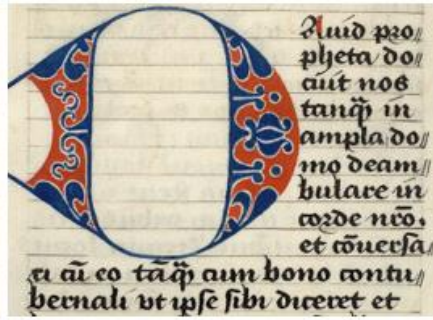 DAuid pro//
pheta do//
cuit nos
tanq̄ in
ampla do//
mo deam//
bulare in
corde nrō.
et cōuersa//
ri cū eo tāq̄ cum bono contu//
bernali vt ipse sibi diceret et